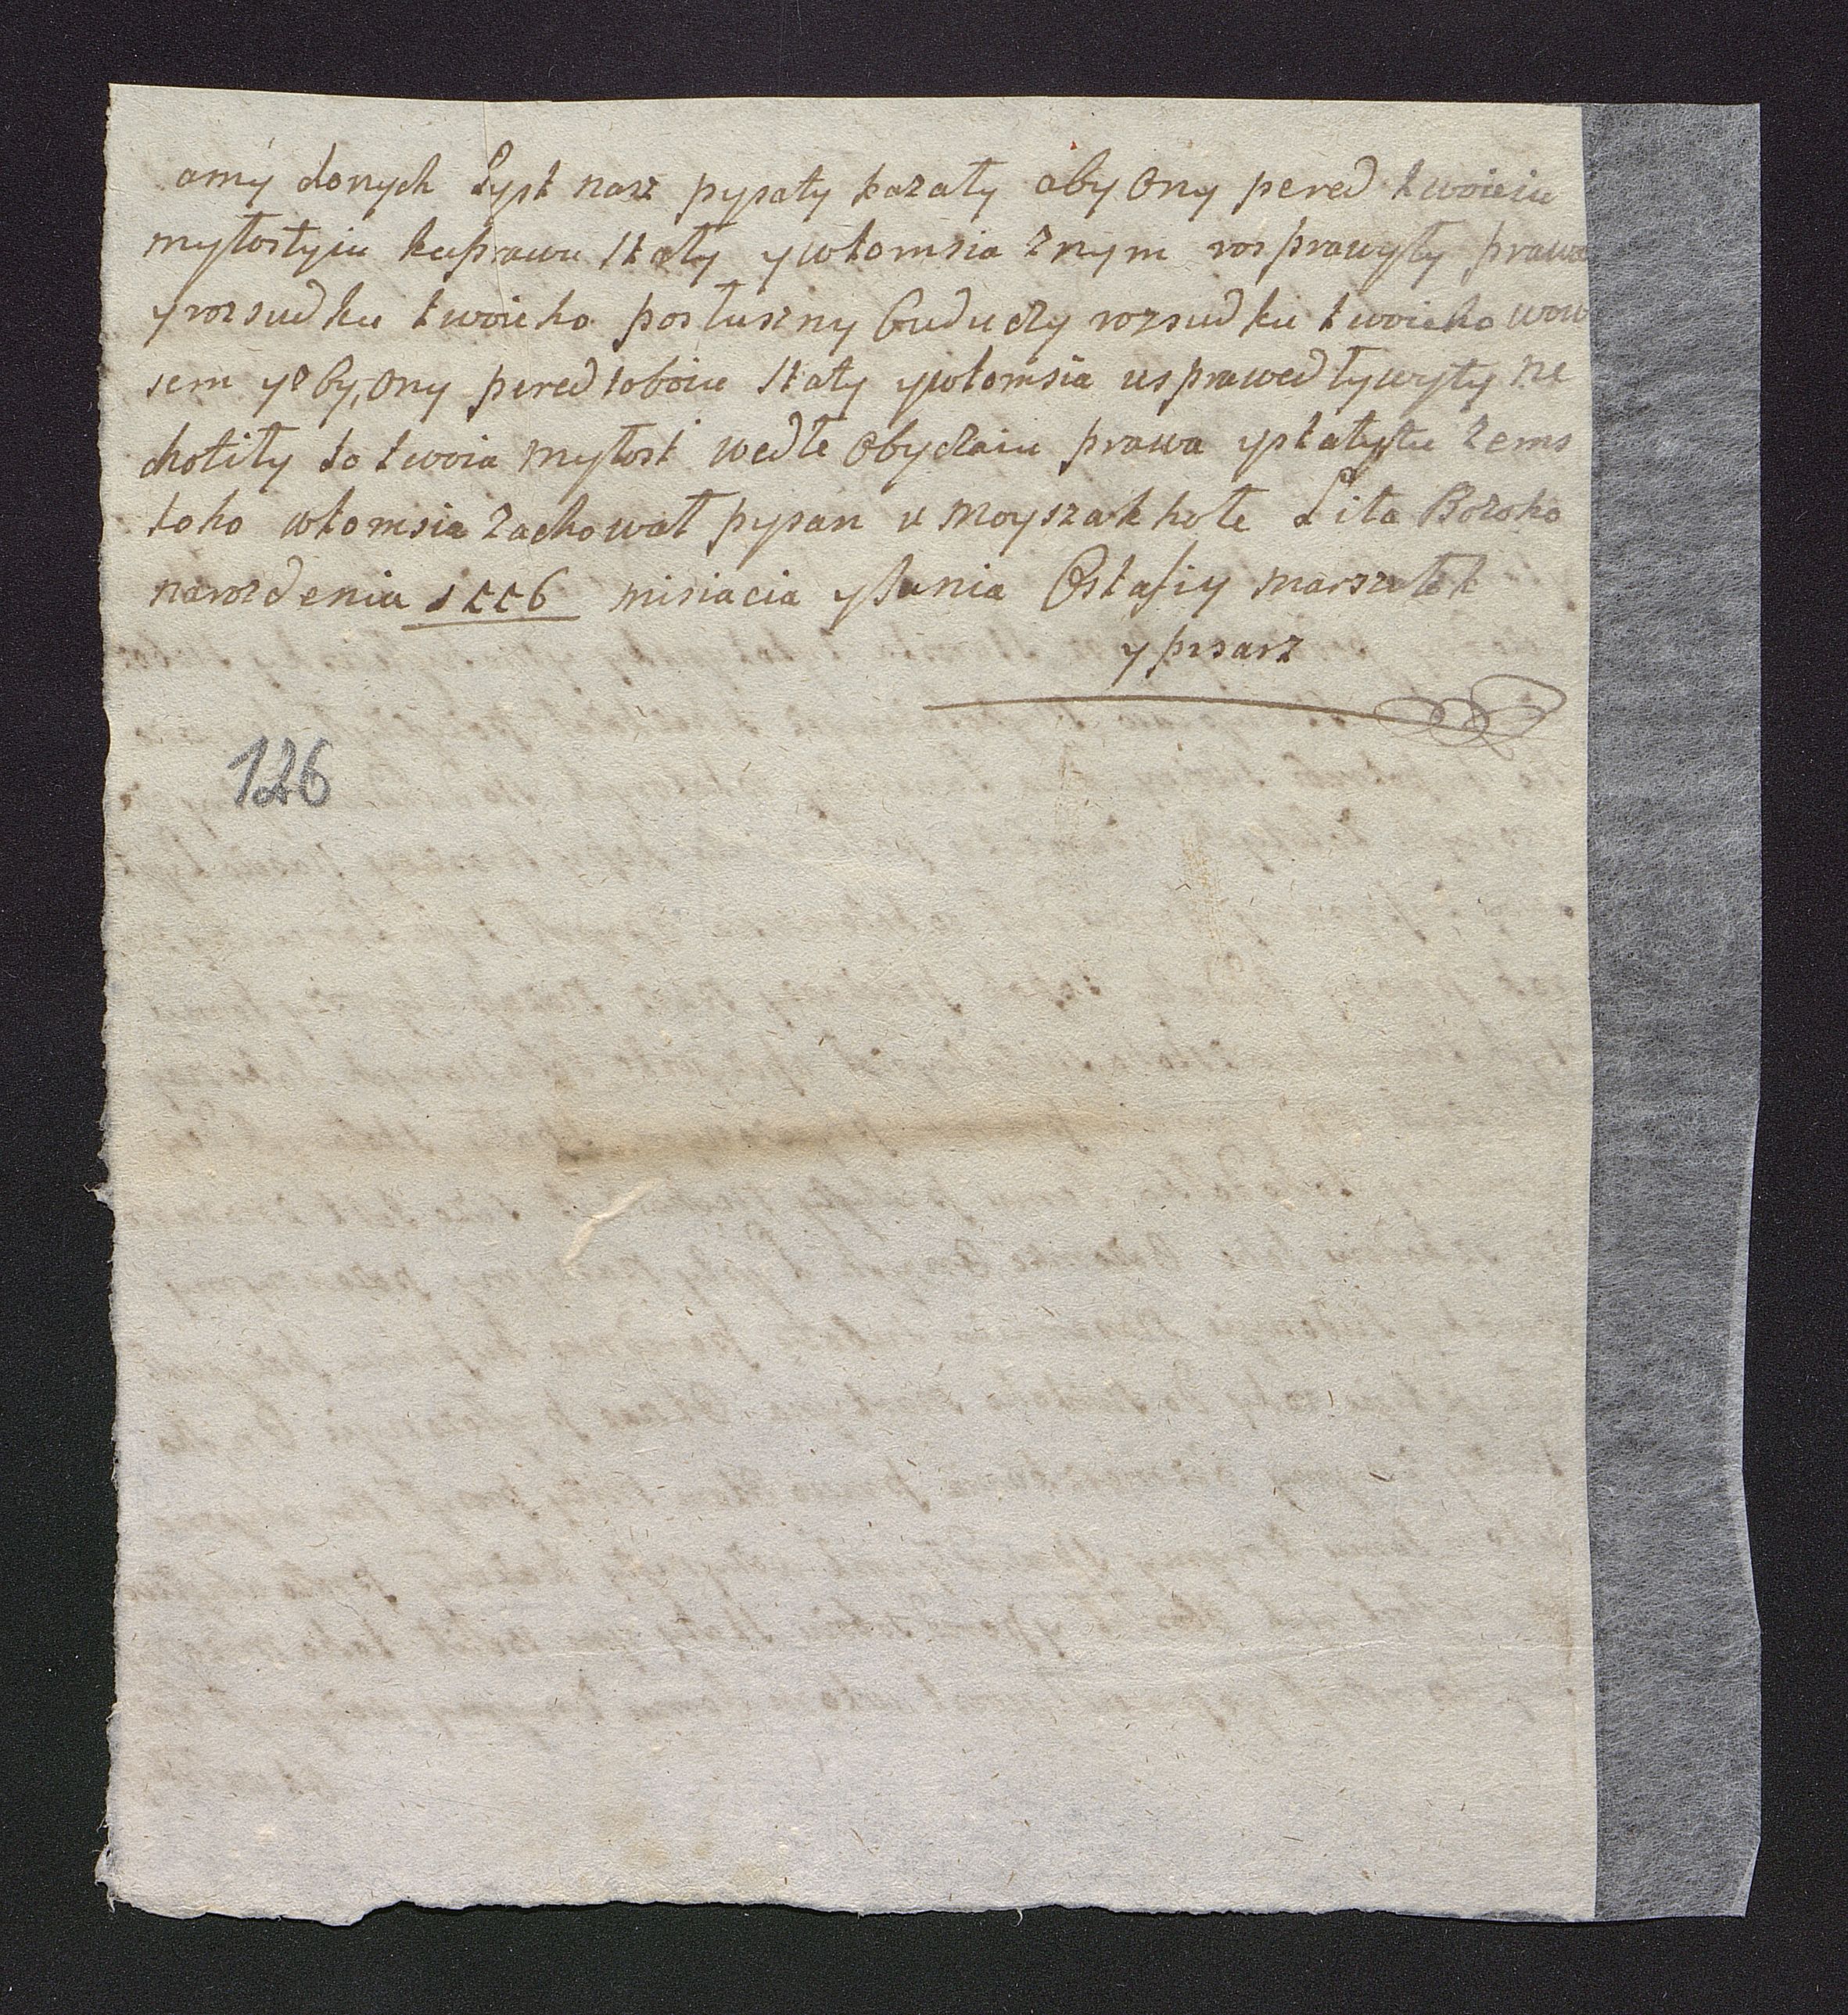 amy donych Lyst nasz pysaty kazały aby Ony pered twoieiu
myłostyiu kuprawu stały ywtomsia znym rosprawyły prawa
yrozsudku twoieho posłuszny buduczy rozsudku twoieho wow
sem yoby, ony pered toboiu stały ywtomsia usprawedływyły ne
chotiły to twoia myłost wedle Obyczaiu prawa ystatutu zems
toho wtomsia zachował pysan u Moyszak hołe Lita Bozoho
narozdenia 1556 misiacia yiunia Ostafiy marszałok
y pisarz
126